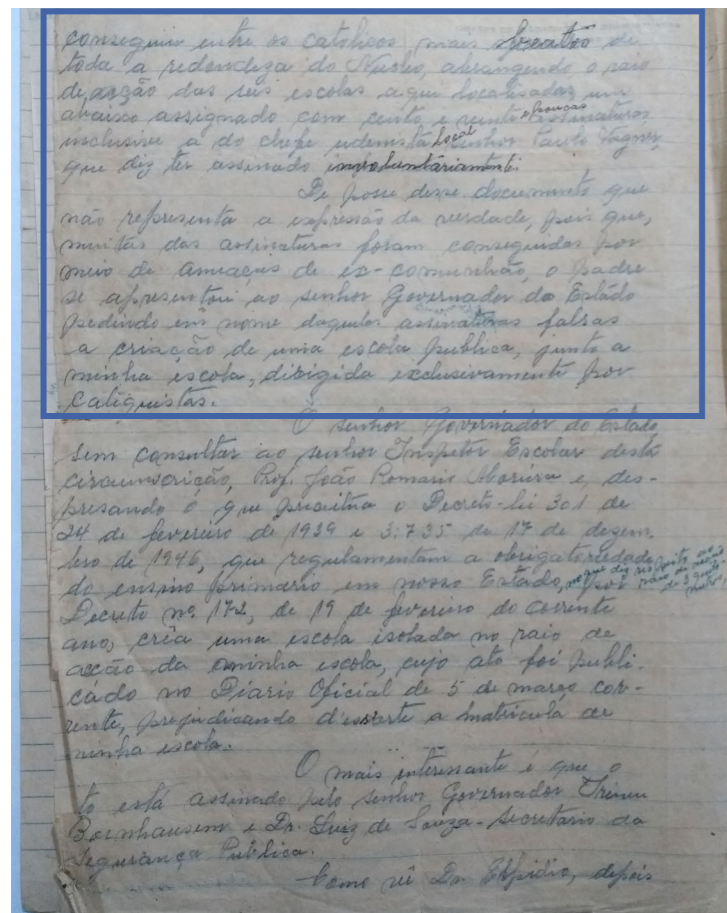 conseguiu entre os catolicos mais beatos de
toda a redondeza do Nucleo, abrangendo o raio
de acção das seis escolas aqui localisadas um
abaixo assignado com cento e vinte e poucas assinaturas
inclusive a do chefe udenista local senhor Paulo Vagner,
que diz ter assinado involuntáriamente.
De posse desse documento que
não representa a expressão da verdade, pois que,
muitas das assinaturas foram conseguidas por
meio de ameaças de ex-comunhão, o padre
se apresentou ao senhor Governador do Estado
pedindo em nome daquelas assinaturas falsas
a criação de uma escola publica, junto a
minha escola, dirigida exclusivamente por
catiquistas.
O senhor Governador do Estado
sem consultar ao senhor Inspetor Escolar desta
circunscrição, Prof. João Romario Moreira e, des-
presando o que preceitua o Decreto-lei 301 de
24 de fevereiro de 1939 e 3.735 de 17 de dezem-
bro de 1946, que regulamentam a obrigatoriedade
do ensino primario em nosso Estado, no que diz respeito ao
raio de
por
Decreto nº. 172, de 19 de fevereiro do corrente
ano, cria uma escola isolada no raio de
acção da minha escola, cujo ato foi publi-
cado no Diario Oficial de 5 de março cor-
rente, prejudicando d'essarte a matricula de
minha escola.
O mais interessante é que o
to está assinado pelo senhor Governador Irineu
Bornhausem e Dr. Luiz de Souza - Secretario da
Segurança Publica.
Como vê Dr. Elpidio, depois